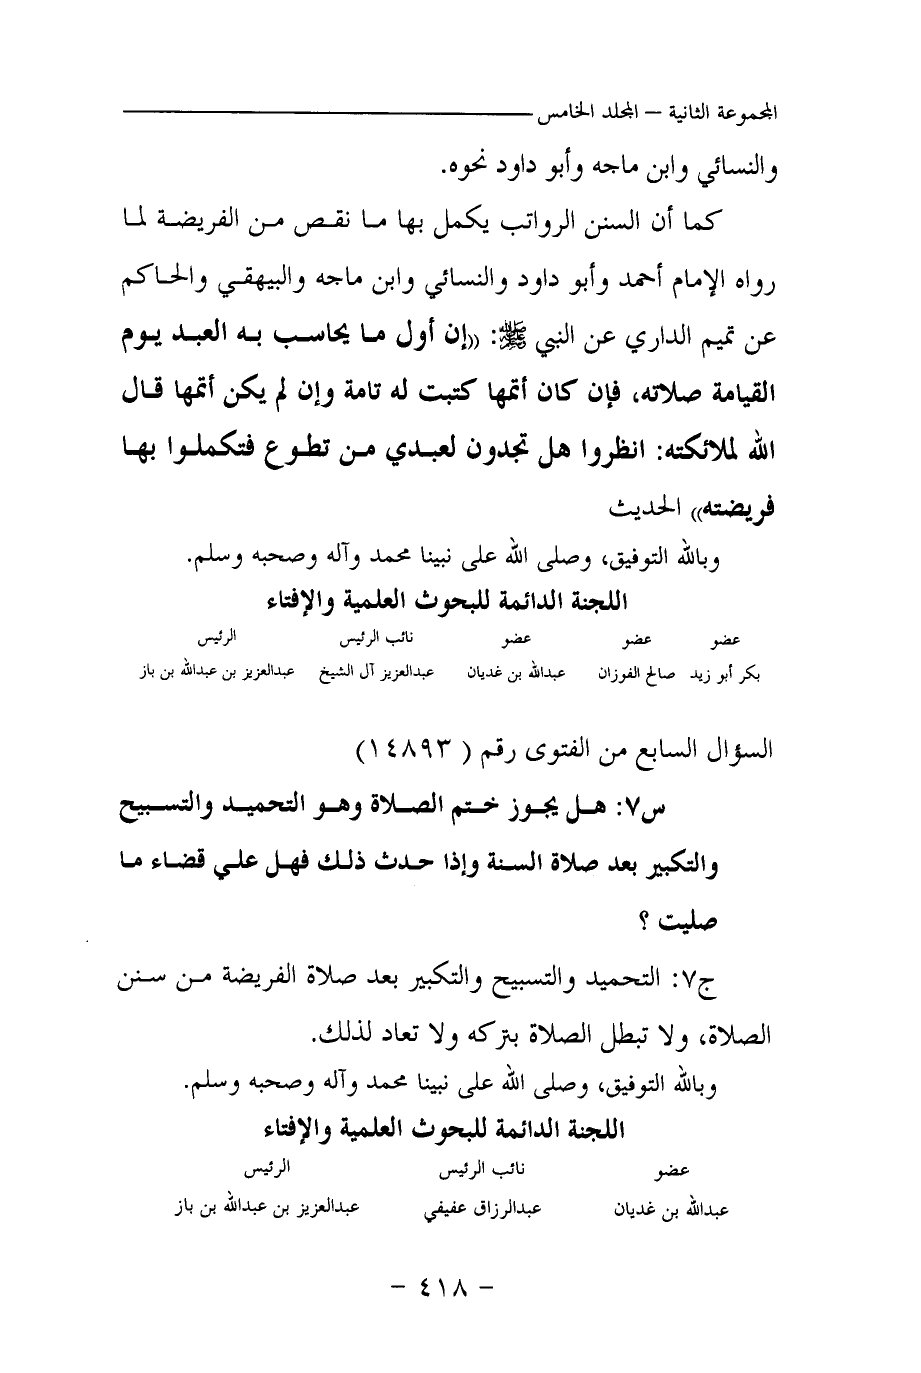 المجموعة الثانية – المجلد الخامس
والنسائي وابن ماجه وأبو داود نحوه.
كما أن السنن الرواتب يكمل بها ما نقص من الفريضة لما
رواه الإمام أحمد وأبو داود والنسائي وابن ماجه والبيهقي والحاكم
عن تميم الداري عن النبي ﷺ: «إن أول ما يحاسب به العبد يوم
القيامة صلاته، فإن كان أتمها كتبت له تامة وإن لم يكن أتمها قال
الله لملائكته: انظروا هل تجدون لعبدي من تطوع فتكملوا بها
فريضته» الحديث
وبالله التوفيق، وصلى الله على نبينا محمد وآله وصحبه وسلم.
اللجنة الدائمة للبحوث العلمية والإفتاء
عضو عضو عضو نائب الرئيس الرئيس
بكر أبو زيد صالح الفوزان عبدالله بن غديان عبدالعزيز آل الشيخ عبدالعزيز بن عبدالله بن باز
السؤال السابع من الفتوى رقم ( ١٤٨٩٣)
س٧: هل يجوز ختم الصلاة وهو التحميد والتسبيح
والتكبير بعد صلاة السنة وإذا حدث ذلك فهل علي قضاء ما
صليت ؟
ج٧: التحميد والتسبيح والتكبير بعد صلاة الفريضة من سنن
الصلاة، ولا تبطل الصلاة بتركه ولا تعاد لذلك.
وبالله التوفيق، وصلى الله على نبينا محمد وآله وصحبه وسلم.
اللجنة الدائمة للبحوث العلمية والإفتاء
عضو نائب الرئيس الرئيس
عبدالله بن غديان عبدالرزاق عفيفي عبدالعزيز بن عبدالله بن باز
– ٤١٨ –